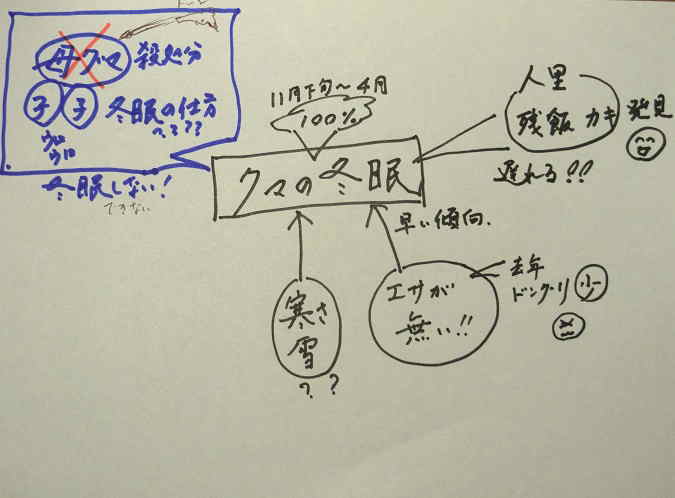 母グマ 殺処分
子 子 冬眠の仕方
?.???
ウロ
ウロ
冬眠しない!
できない
11月下旬~4月
100%
クマの冬眠
人里
残飯 カキ 発見
遅れる!!
早い傾向.
エサが
無い!!
去年
ドングリ 少
寒さ
雪
? ?